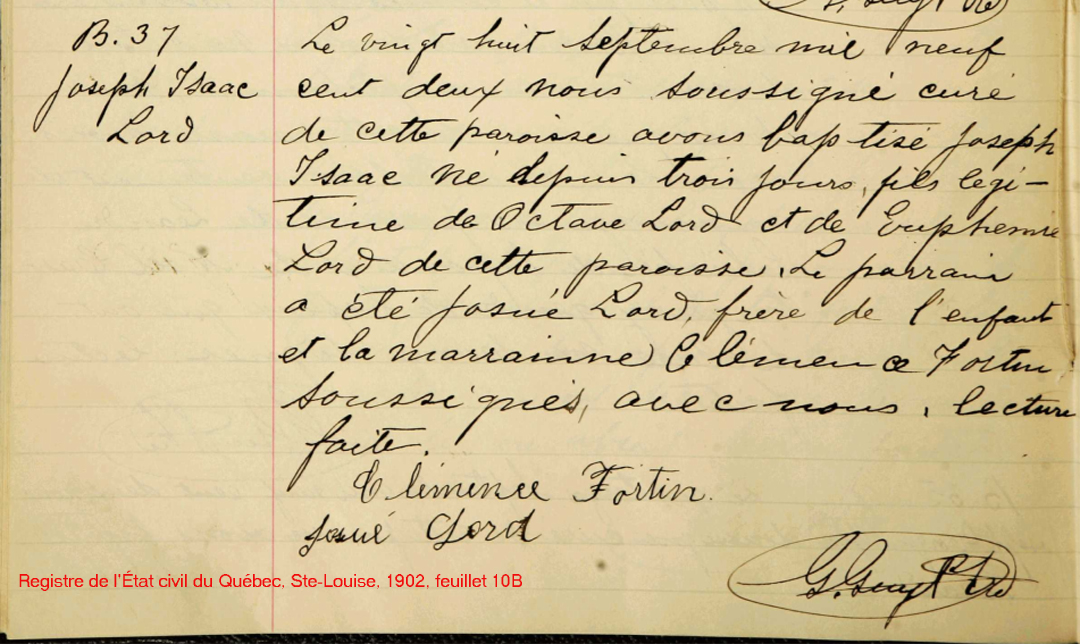 B. 37
Joseph Isaac
Lord
Le vingt huit septembre mil neuf
cent deux nous soussigné curé
de cette paroisse avons baptisé Joseph
Isaac né depuis trois jours, fils légi-
time de Octave Lord et de Euphemie
Lord de cette paroisse. Le parrain
a été Josué Lord, frère de l'enfant
et la marrainne Clémence Fortin
soussignés, avec nous, lecture
faite.
Clémence Fortin.
Josué Lord
Registre de l'État civil du Québec, Ste-Louise, 1902, feuillet 10B